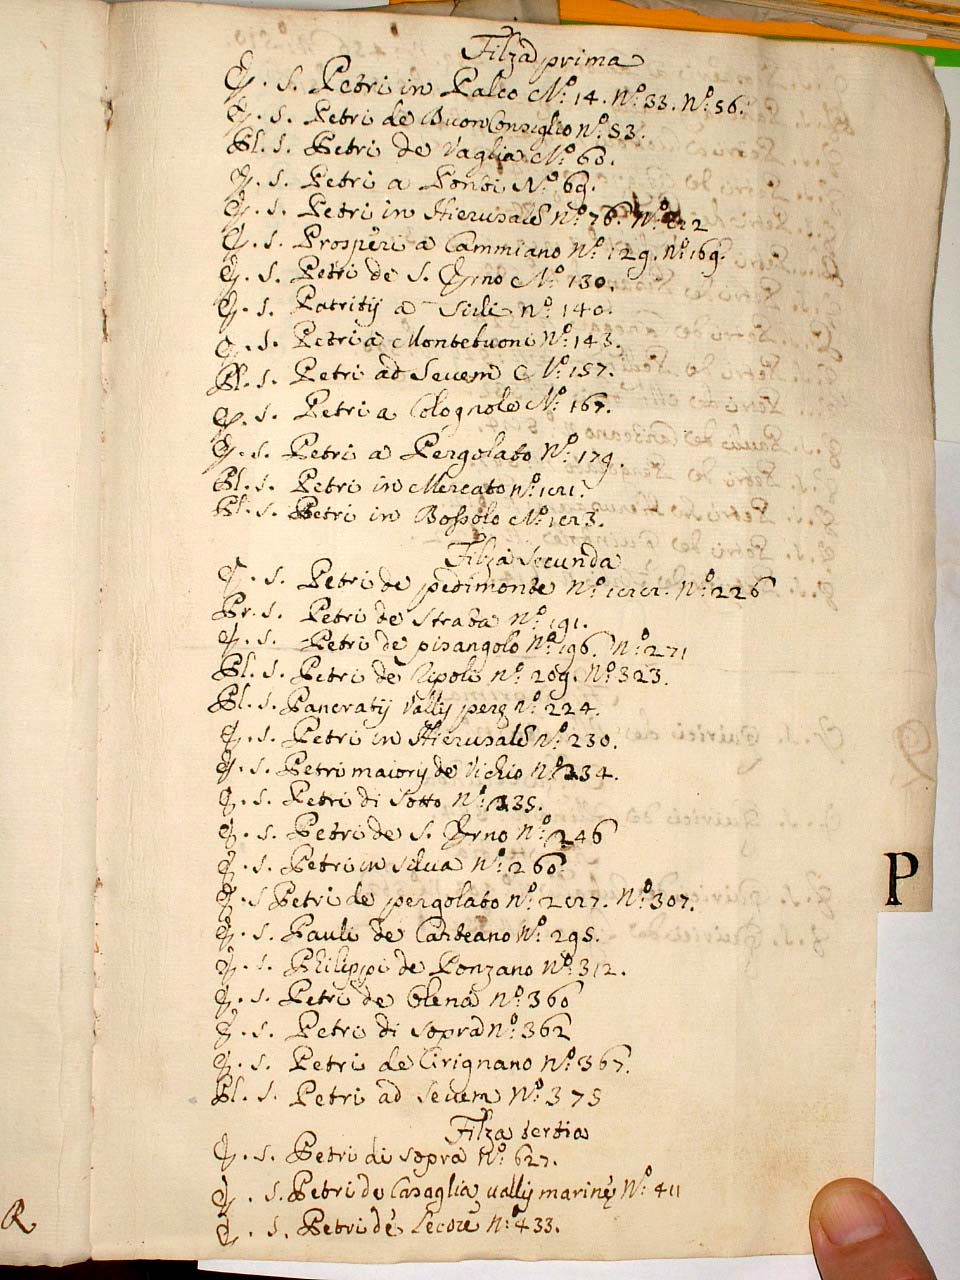 Filza prima
E. S. Petri in Palco Nº. 14. nº. 33. nº. 56.
E. S. Petri de Buonconsiglio nº. 53.
Pl. S. Petri de Vaglia Nº. 60.
E. S. Petri a Ponti Nº. 69.
E. S. Petri in Hierusalẽ nº. 76. nº.
E. S. Prosperi a Cammiano nº. 129. nº. 169.
E. S. Petri de S. Nº. 130.
E. S. Patritij a Sivli nº. 140.
E. S. Petri a Montebuoni Nº. 143.
Pl. S. Petri ad Sevem Nº. 157.
E. S. Petri a Colognole Nº. 167.
E. S. Petri a Pergolato Nº. 179.
Pl. S. Petri in Mercato nº. 181.
Pl. S. Petri in Bossolo Nº. 183.
Filza secunda
E. S. Petri de pedimonte nº. 188. nº. 226
Pr. S. Petri de Strada nº. 191.
E. S. Petri de pisangolo nº. 196. nº. 271
Pl. S. Petri de Ripoli nº. 209. nº. 323.
Pl. S. Pancratij Vallij perg nº. 224.
E. S. Petri in Hierusalẽ nº. 230.
E. S. Petri maiorij de Vichio nº. 234.
E. S. Petri di sotto nº. 235.
E. S. Petri de S. nº. 246
E. S. Petri in silva nº. 260.
E. S. Petri de pergolato nº. 287. Nº. 307.
E. S. Pauli de Nº. 295.
E. S. Philippi de Ponzano Nº. 312.
E. S. Petri de Olena nº. 360
E. S. Petri di sopra nº. 362
E. S. Petri de Cirignano nº. 367.
Pl. S. Petri ad sevem nº. 375
Filza tertia
E. S. Petri di sopra nº. 627.
E. S. Petri de Casaglia vallij marinę Nº. 411
E. S. Petri de Lecore nº. 433.
P
R